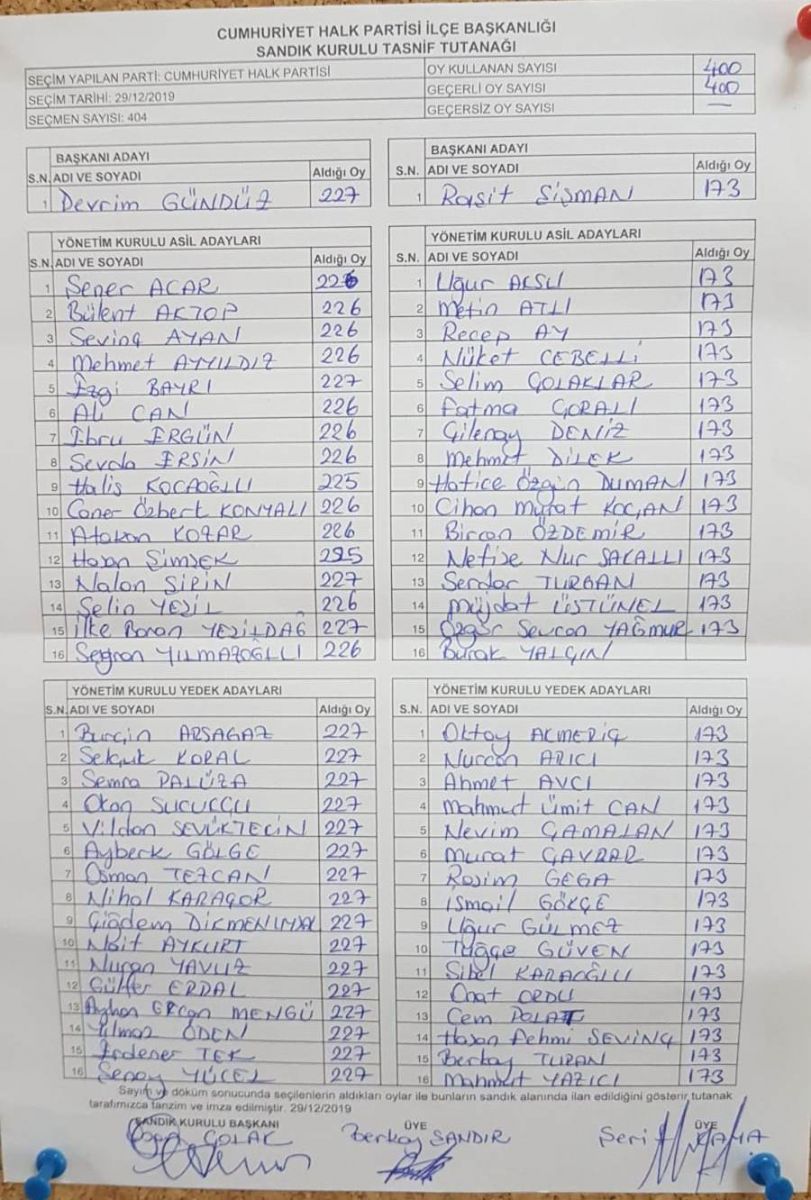 CUMHURİYET HALK PARTİSİ İLÇE BAŞKANLIĞI
SANDIK KURULU TASNİF TUTANAĞI
SEÇİM YAPILAN PARTİ: CUMHURİYET HALK PARTİSİ
SEÇİM TARİHİ: 29/12/2019
SEÇMEN SAYISI: 404
OY KULLANAN SAYISI 400
GEÇERLİ OY SAYISI 400
GEÇERSİZ OY SAYISI —
BAŞKANI ADAYI
S.N. ADI VE SOYADI Aldığı Oy
1 Devrim GÜNDÜZ 227
BAŞKANI ADAYI
S.N. ADI VE SOYADI Aldığı Oy
1 Raşit ŞİŞMAN 173
YÖNETİM KURULU ASİL ADAYLARI
S.N. ADI VE SOYADI Aldığı Oy
1 Şener ACAR 226
2 Bülent AKTOP 226
3 Sevinç AYAN 226
4 Mehmet AYYILDIZ 226
5 Ezgi BAYRI 227
6 Ali CAN 226
7 Ebru ERGÜN 226
8 Sevda ERSİN 226
9 Halis KOCAOĞLU 225
10 Caner Özbert KONYALI 226
11 Atakan KOZAR 226
12 Hasan ŞİMŞEK 225
13 Nalan ŞİRİN 227
14 Selin YEŞİL 226
15 İlke Boran YEŞİLDAĞ 227
16 Seyran YILMAZOĞLU 226
YÖNETİM KURULU ASİL ADAYLARI
S.N. ADI VE SOYADI Aldığı Oy
1 Uğur AKSU 173
2 Metin ATLI 173
3 Recep AY 173
4 Nüket CEBELLİ 173
5 Selim ÇOLAKLAR 173
6 Fatma ÇORALI 173
7 Gilenay DENİZ 173
8 Mehmet DİLEK 173
9 Hatice Özgün DUMAN 173
10 Cihan Murat KOÇAN 173
11 Bircan ÖZDEMİR 173
12 Nefise Nur SAKALLI 173
13 Serdar TURGAN 173
14 Müjdat ÜSTÜNEL 173
15 Özgür Sevcan YAĞMUR 173
16 Burak YALÇIN
YÖNETİM KURULU YEDEK ADAYLARI
S.N. ADI VE SOYADI Aldığı Oy
1 Burçin ARSAGAZ 227
2 Selçuk KORAL 227
3 Semra PALUZA 227
4 Okan SUCUCCU 227
5 Vildan SEVÜKTEKİN 227
6 Ayberk GÖLGE 227
7 Osman TEZCAN 227
8 Nihal KARAÇOR 227
9 Çiğdem 227
10 AYKURT 227
11 Nuran YAVUZ 227
12 Gülfer ERDAL 227
13 Ayhan Ercan MENGÜ 227
14 Yılmaz ÖDEN 227
15 Erdener TEK 227
16 Şenay YÜCEL 227
YÖNETİM KURULU YEDEK ADAYLARI
S.N. ADI VE SOYADI Aldığı Oy
1 Oktay AKMERİÇ 173
2 Nurcan ARICI 173
3 Ahmet AVCI 173
4 Mahmut Ümit CAN 173
5 Nevim ÇAMALAN 173
6 Murat ÇAVDAR 173
7 Rasim GEGA 173
8 İsmail GÖKÇE 173
9 Uğur GÜLMEZ 173
10 Tuğçe GÜVEN 173
11 Sibel KARAOĞLU 173
12 Onat ORDU 173
13 Cem POLAT 173
14 Hasan Fehmi SEVİNÇ 173
15 Berkay TURAN 173
16 Mahmut YAZICI 173
Sayım ve döküm sonucunda seçilenlerin aldıkları oylar ile bunların sandık alanında ilan edildiğini gösterir tutanak
tarafımızca tanzim ve imza edilmiştir. 29/12/2019
SANDIK KURULU BAŞKANI ÜYE ÜYE
ÇOLAK Berkay SANDIR